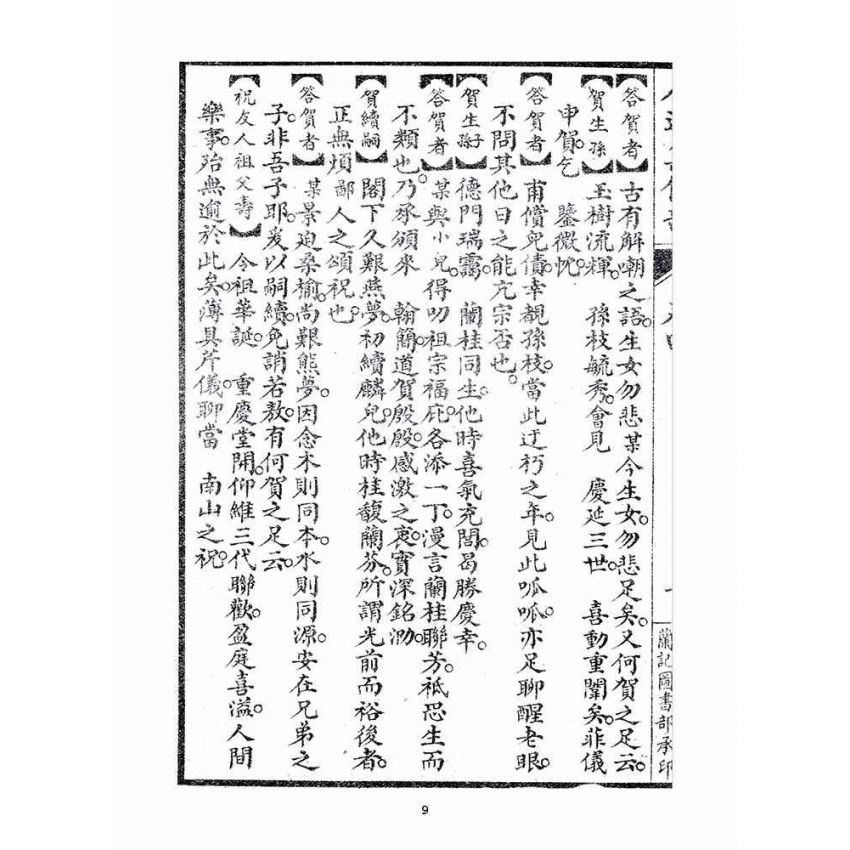 蘭記圖書部承印
【答賀者】古有解嘲之語。生女勿悲。某今生女。勿悲足矣。又何賀之足云。
【賀生孫】玉樹流輝。　孫枝毓秀。會見　慶延三世。　喜動重闈矣。菲儀
申賀。乞　鑒微忱。
【答賀者】甫償兒債。幸覩孫枝。當此迂朽之年。見此呱呱。亦足聊醒老眼。
不問其他日之能亢宗否也。
【賀生子孫】德門瑞靄。　蘭桂同生。他時喜氣充閭。曷勝慶幸。
【答賀者】某與小兒。得叨祖宗福庇。各添一丁。漫言蘭桂聯芳。祗恐生而
不類也。乃承頒來　翰簡。道賀殷殷。感激之衷。實深銘泐。
【賀續嗣】閣下久艱燕夢。初續麟兒。他時桂馥蘭芬。所謂光前而裕後者。
正無煩鄙人之頌祝也。
【答賀者】某景迫桑榆。尚艱熊夢。因念木則同本。水則同源。安在兄弟之
子。非吾子耶。爰以嗣續。免誚若敖。有何賀之足云。
【祝友人祖父壽】令祖華誕。　重慶堂開。仰維三代聯歡。盈庭喜溢。人間
樂事。殆無逾於此矣。薄具芹儀。聊當　南山之祝。
9